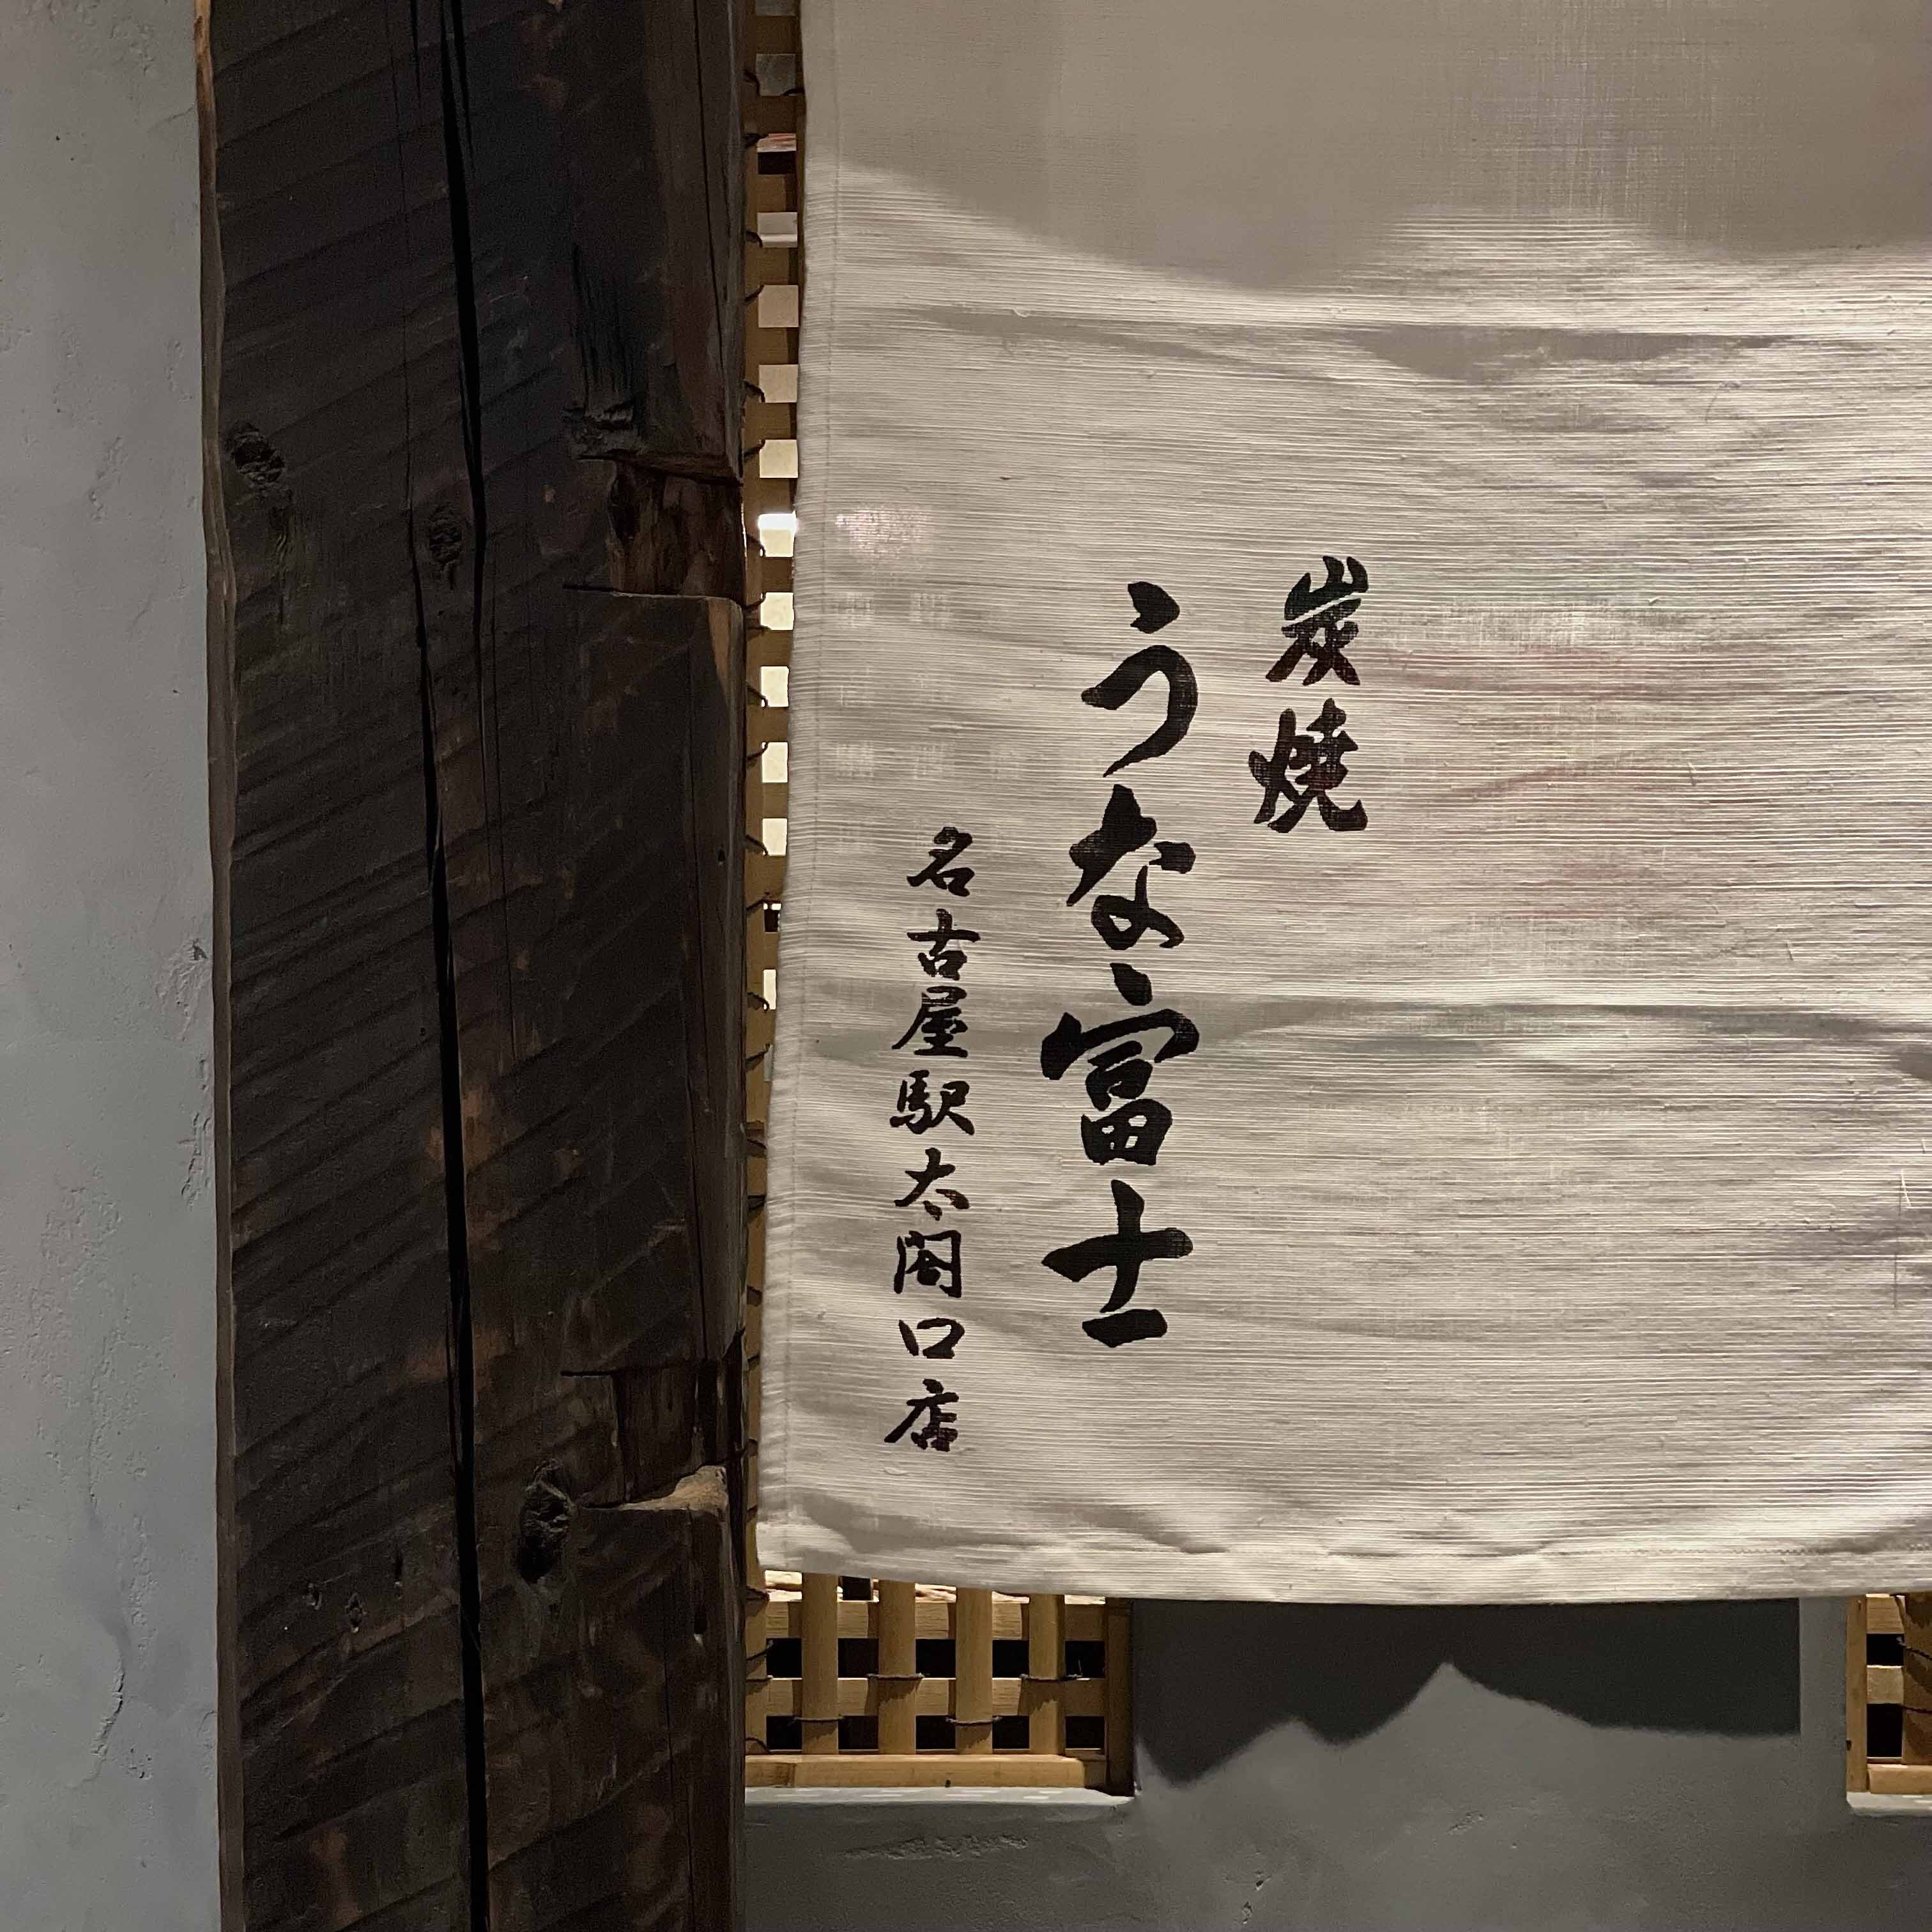 炭焼
うな富士
名古屋駅太閤口店